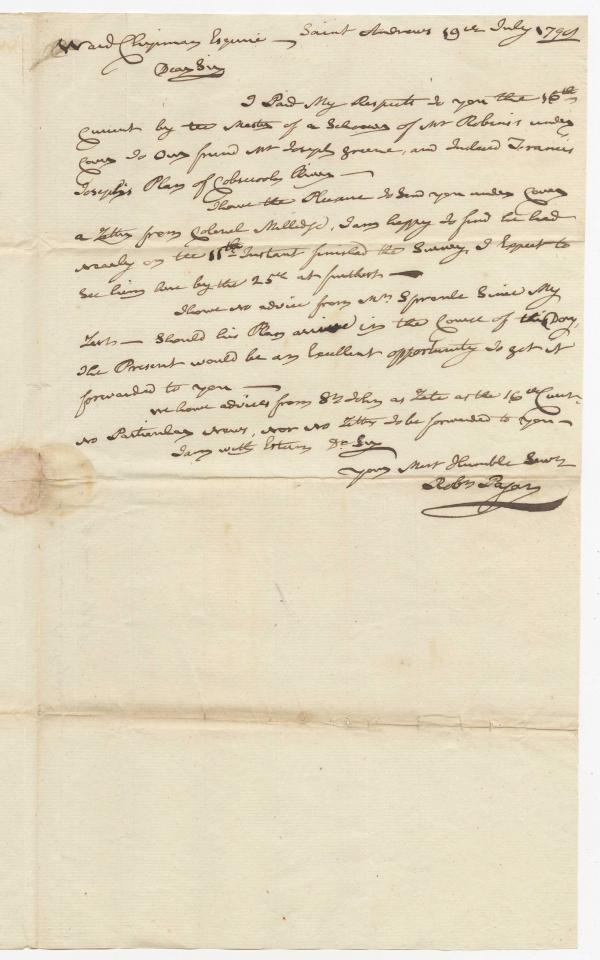 Ward Chipman Esquire — Saint Andrews 19th July
Dear Sir
I Paid My Respects to you the 16th
Current by the Master of a Schooner of Mr Robinss under
Cover to Our friend Mr Joseph Greene, and Inclosed Francis
Joseph's Plan of Cobscook River —
I have the Pleasure to Send you under Cover
a Letter from Colonel Milledge, I am happy to find he had
nearly on the 11th Instant finished the Survey, I Expect to
See him here by the 25th at furthest —
I have no advice from Mr Sproule Since My
Last — Should his Plan arrive in the Course of this Day,
The Present would be an Excellent opportunity to get it
forwarded to you —
We have advices from St John as Late as the 16th Curt
No Particular News, nor no Letter to be forwarded to you —
I am with Esteem Dr Sir
Your Most Humble Servt
Robt Pagan